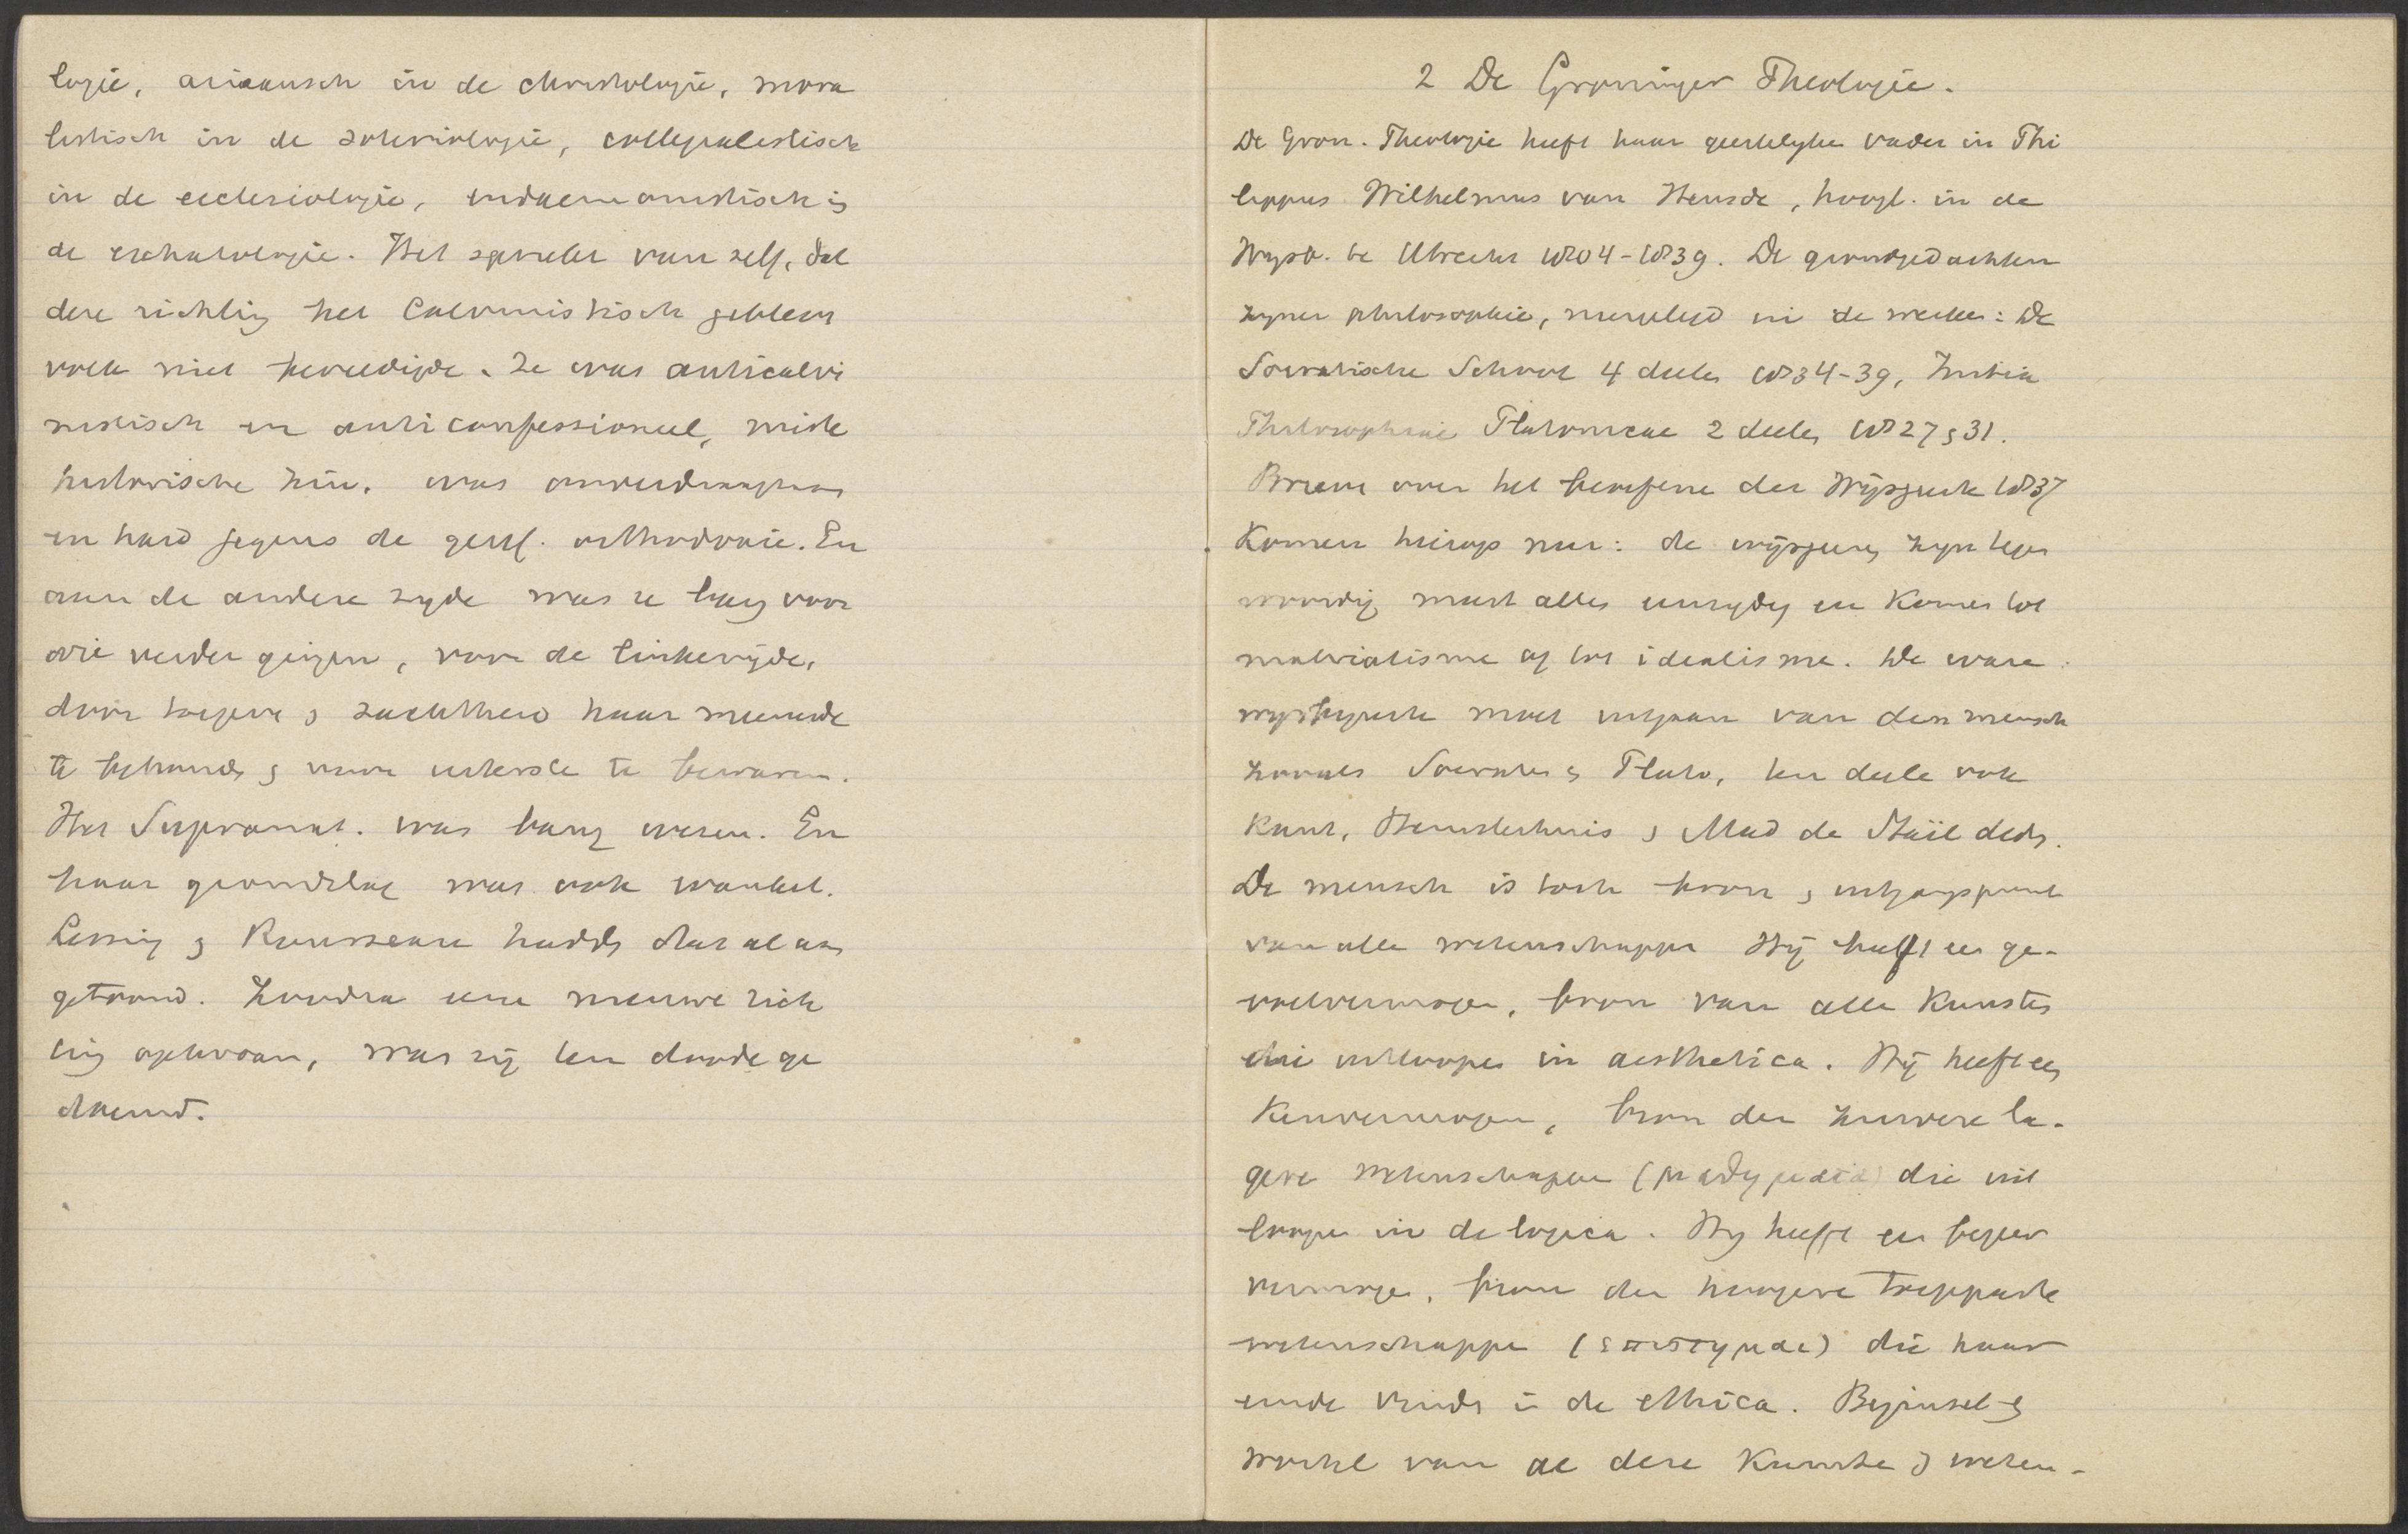 logie, ariaansch in de christologie, mora
listisch in de soteriologie, collegialistisch
in de ecclesiologie, eudaemonistisch in
de eschatologie. Het spreekt van zelf, dat
deze richting het Calvinistisch gebleven
volk niet bevredigde. Ze was anticalvi
nistisch en anticonfessioneel, miste
historische zin, was onverdraagzaam
en hard jegens de geref. orthodoxie. En
aan de andere zyde was ze bang voor
wie verder gingen, voor de linkerzijde,
door toegeven en zachtheid haar meende
te behouden en voor uiterste te bewaren.
Het Supranat. was bang wezen. En
haar grondslag was ook wankel.
Lessing en Rousseau hadden dat al aan
getoond. Zoodra eene nieuwe rich
ting optrad, was zij ten doode ge
doemd.
2 De Groninger Theologie.
De Gron. Theologie heeft haar geestelyken vader in Phi
lippus Wilhelmus van Heusde, hoogl. in de
Wysb. te Utrecht 1804-1839. De grondgedachten
zyner philosophie, neergelegd in de werken: De
Socratische School 4 deelen 1834-39, Initia
Philosophiae Platonicae 2 deelen 1827 en 31.
Brieven over het beoefenen der Wijsgeerte 1837
Komen hierop neer: de wijsgeeren zyn tegen
woordig meest alles eenzydig en komen tot
materialisme of tot idealisme. De ware
wysbegeerte moet uitgaan van den mensch
zooals Socrates en Plato, ten deele ook
Kant, Hemsterhuis en Mad de Staël deden.
De mensch is toch bron en uitgangspunt
van alle wetenschappen Hij heeft een ge-
voelvermogen, bron van alle Kunsten
die uitloopen in aesthetica. Hij heeft een
Kenvermogen, bron der zuivere la-
gere wetenschappen (μαθηματα) die uit
loopen in de logica. Hy heeft een begeer
vermogen, bron der hoogere toegepaste
wetenschappen (επιστημαι) die haar
einde vinden in de ethica. Beginsel en
wortel van al deze Kunsten en weten-